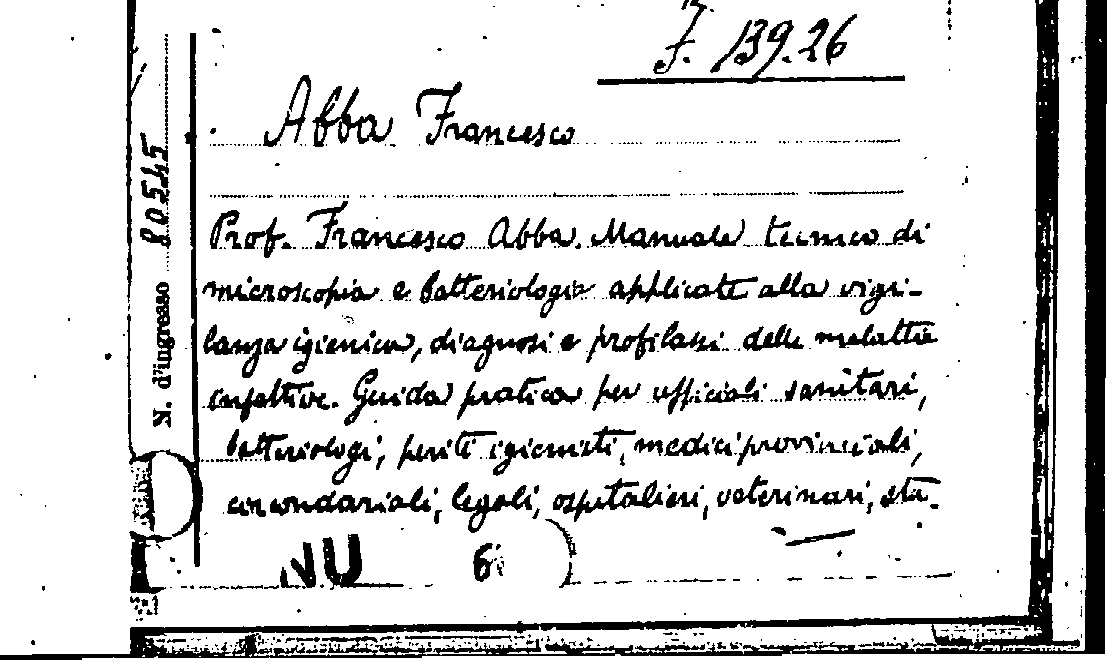 F. 139.26
Abba Francesco
Prof. Francesco Abba. Manuale tecnico di
microscopia e batteriologia applicate alla vigi-
lanza igienica, diagnosi e profilassi delle malattie
infettive. Guida pratica per ufficiali sanitari,
batteriologi, periti igienisti, medici provinciali,
circondariali, legali, ospitalieri, veterinari, stu-
N. d'ingresso 80545
NU 6